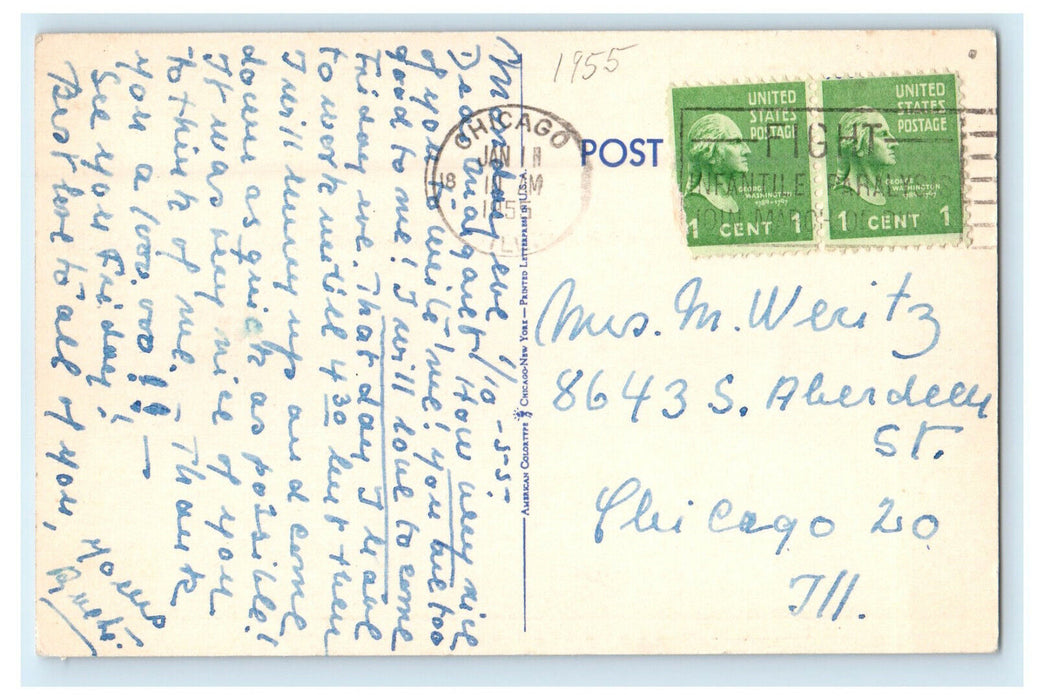 1955
CHICAGO
JAN 11
18
1955
ILL.
POST
FIGHT
INFANTILE PARALYSIS
JOIN MARCH OF
UNITED
STATES
POSTAGE
GEORGE
WASHINGTON
1789-1797
1 CENT 1
UNITED
STATES
POSTAGE
GEORGE
WASHINGTON
1 CENT 1
Mrs. M. Weritz
8643 S. Aberdeen
St.
Chicago 20
Ill.
AMERICAN COLORTYPE CHICAGO-NEW YORK — PRINTED LETTERPRESS IN U.S.A.
Monday eve 1/10-55-
Dear How very nice
of you to write me! You are too
good to me! I will love to come
Friday eve. That day I have
to work until 430 but then
I will hurry up and come
down as quick as possible!
It was very nice of you
to think of me. – Thank
you a 1000,000!! —
See you Friday!
Best love to all of you,
Yours